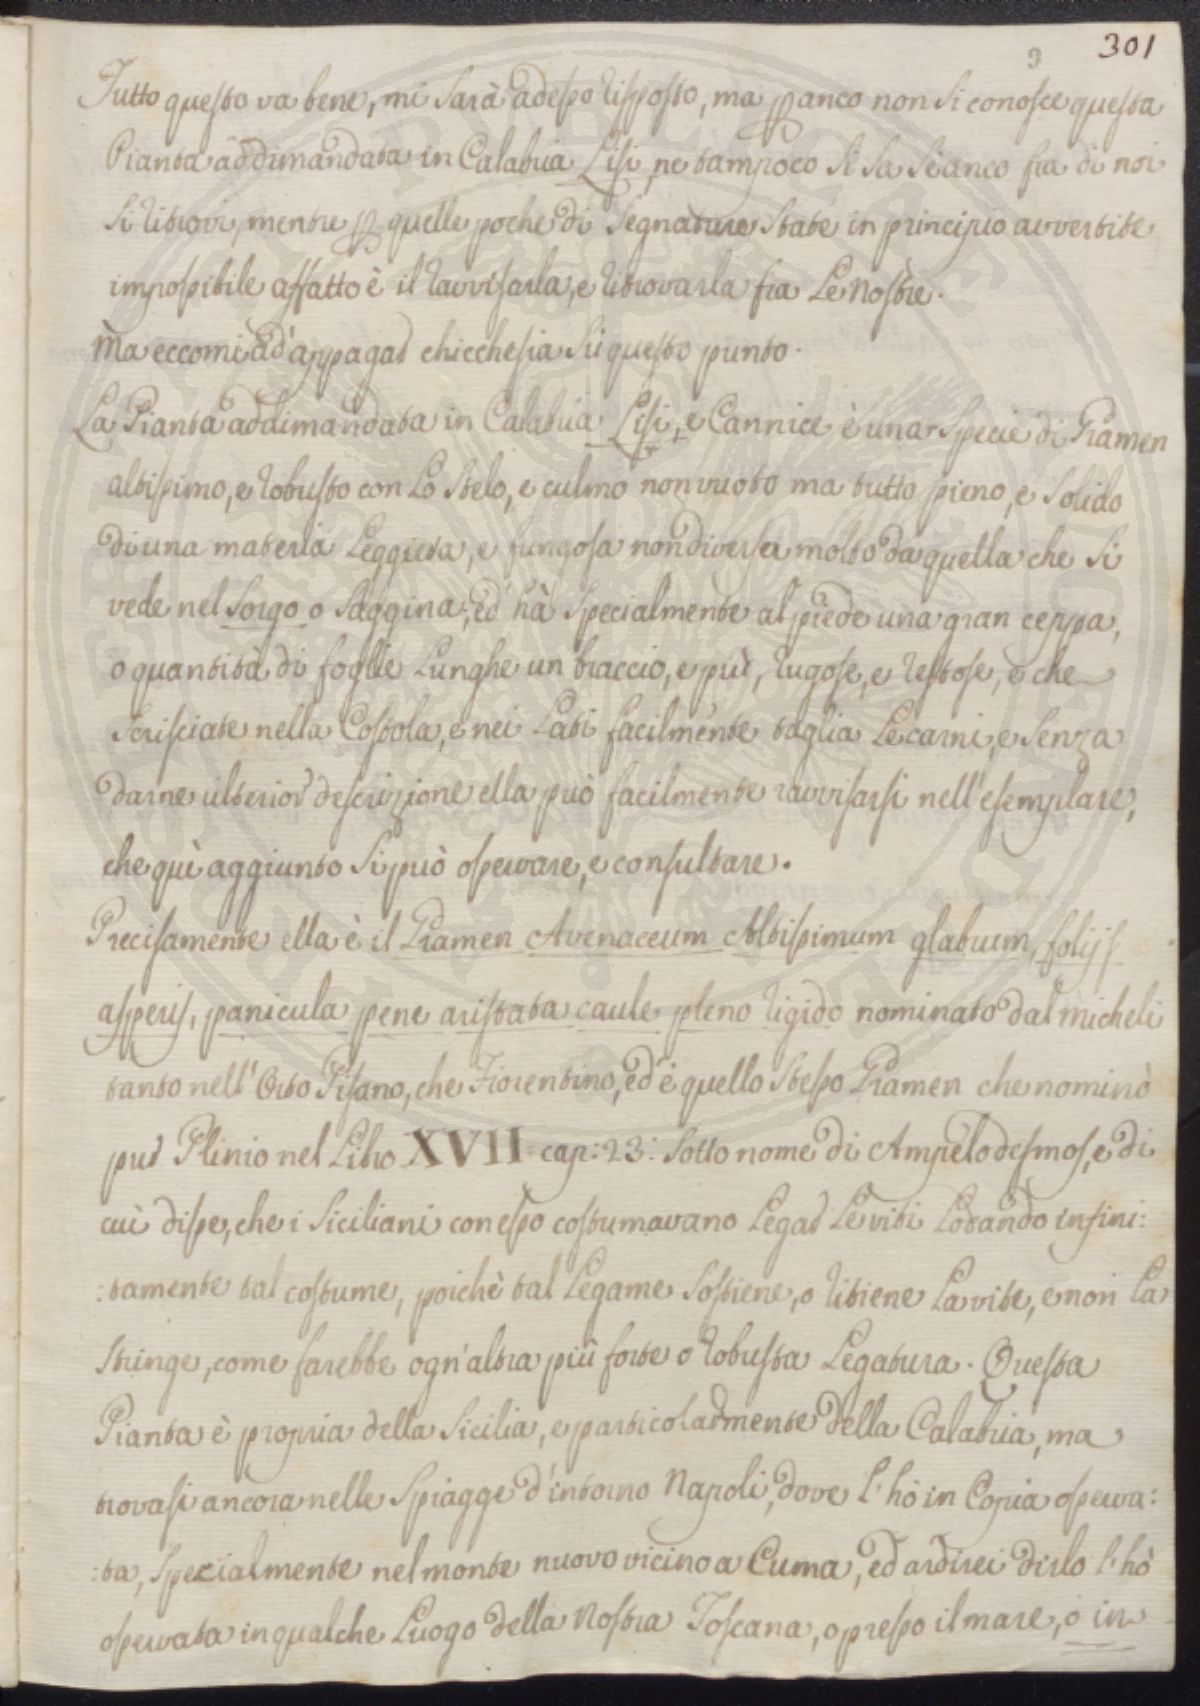 301
3
Tutto questo va bene, mi sarà adesso risposto, ma p anco non si conosce questa
Pianta addimandata in Calabria Lisi, ne tampoco si sa se anco fra di noi
si ritrovi, mentre p quelle poche di segnature state in principio avvertite
impossibile affatto è il ravvisarla, e ritrovarla fra Le Nostre.
Ma eccomi ad appagar chicchesia sù questo punto.
La Pianta addimandata in Calabria Lisi, e Cannice è una Specie di Gramen
altissimo, e robusto con Lo Stelo, e culmo non vuoto ma tutto pieno, e Solido
di una materia Leggiera, e fungosa non diversa molto da quella che si
vede nel Sorgo o Saggina; ed hà specialmente al piede una gran ceppa,
o quantità di foglie Lunghe un braccio, e più, rugose, e restose, e che
strisciate nella Costola, e nei Lati facilmente taglia Le carni, e senza
darne ulterior descrizione ella può facilmente ravvisarsi nell'esemplare,
che quì aggiunto si può osservare, e consultare.
Precisamente ella è il Gramen Avenaceum Altissimum glabrum, folijs
asperis, panicula pene aristata caule pleno rigido nominato dal Micheli
tanto nell'Orto Pisano, che Fiorentino, ed è quello stesso Gramen che nominò
pur Plinio nel Libro XVII cap: 23: sotto nome di Ampelodesmos, e di
cui disse, che i Siciliani con esso costumavano Legar Le viti Lodando infini:
:tamente tal costume, poichè tal Legame sostiene, o ritiene La vite, e non La
stringe, come farebbe ogn'altra più forte o robusta Legatura. Questa
Pianta è propria della Sicilia, e particolarmente della Calabria, ma
trovasi ancora nelle Spiagge d'intorno Napoli, dove l'hò in Copia osserva:
:ta, specialmente nel monte nuovo vicino a Cuma, ed ardirei dirlo l'hò
osservata in qualche Luogo della Nostra Toscana, o presso il mare, o in